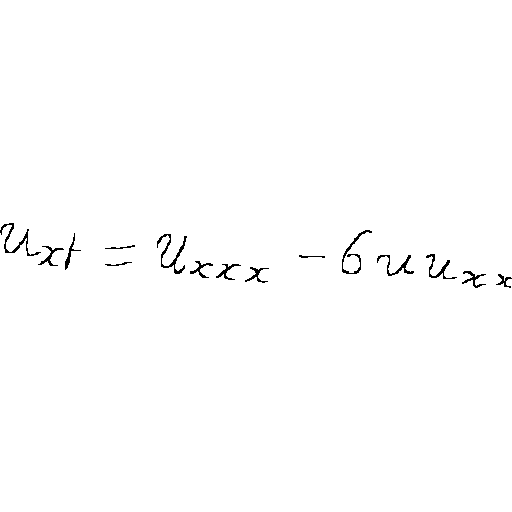 u_{xt} = u_{xxx} - 6uu_{xx}